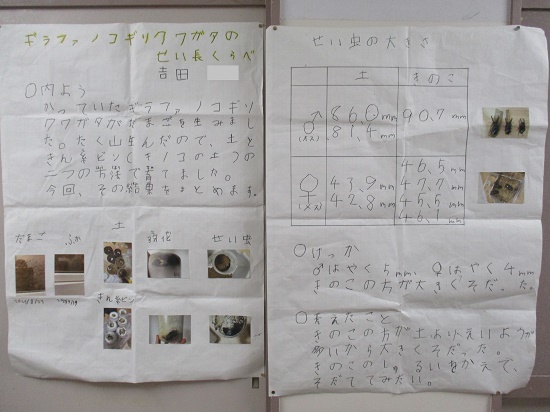 ギラファノコギリクワガタの
せい長くらべ
吉田
〇内よう
かっていたギラファノコギリ
クワガタがたまごを生みまし
た。たく山生んだので、土と
きん糸ビン(キノコの土)の
二つの方法で育てました。
今回、その結果をまとめます。
たまご ふ化 土 蛹化 せい虫
きん糸ビン
せい虫の大きさ
土 きのこ
♂ (オス) 86.0mm 90.7mm
81.4mm
♀ (メス) 43.9mm 46.5mm
42.8mm 47.7mm
45.5mm
46.1mm
〇けっか
♂はやく5mm ♀はやく4mm
きのこの方が大きくそだった。
〇考えたこと
きのこの方が土よりえいようが
多いから大きくそだった。
きのこのしゅるいをかえて、
そだててみたい。